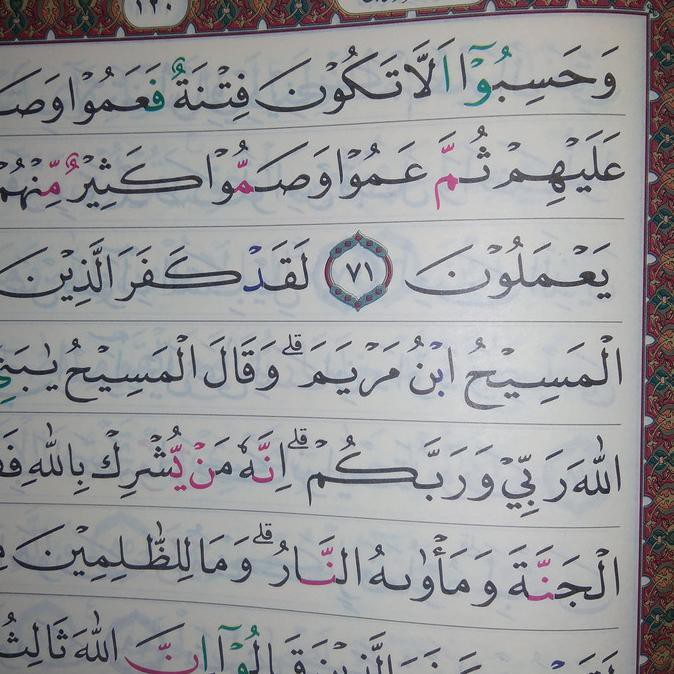 ١٢٠
وَحَسِبُوْٓا اَلَّا تَكُوْنَ فِتْنَةٌ فَعَمُوْا وَصَ
عَلَيْهِمْ ثُمَّ عَمُوْا وَصَمُّوْا كَثِيْرٌ مِّنْهُمْ
يَعْمَلُوْنَ ٧١ لَقَدْ كَفَرَ الَّذِيْنَ
الْمَسِيْحُ ابْنُ مَرْيَمَ ۗ وَقَالَ الْمَسِيْحُ يٰبَنِيْ
اللّٰهَ رَبِّيْ وَرَبَّكُمْ ۗ اِنَّهٗ مَنْ يُّشْرِكْ بِاللّٰهِ فَقَ
الْجَنَّةَ وَمَأْوٰىهُ النَّارُ ۗ وَمَا لِلظّٰلِمِيْنَ مِ
لَقَدْ كَفَرَ الَّذِيْنَ قَالُوْٓا اِنَّ اللّٰهَ ثَالِثُ